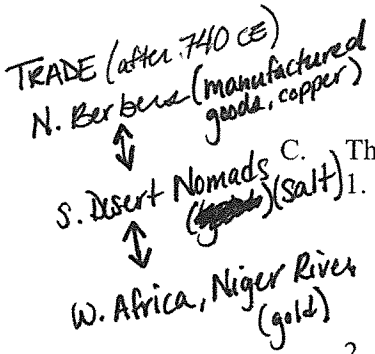 TRADE (after 740 CE)
N. Berbers (manufactured
goods, copper)
C. Th
S. Desert Nomads
(salt) 1.
W. Africa, Niger River
(gold)
2